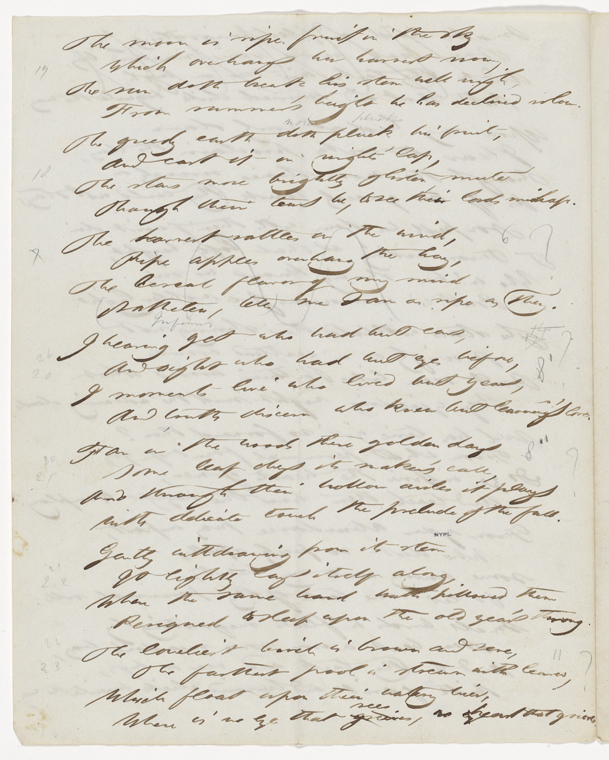 The moon is ripe fruit in the sky
19
Which overhangs her harvest now,
The sun doth break his stem well nigh,
From summer's height he has declined so low.
The greedy earth doth pluck his fruit,
And cast it in night's lap,
The stars more brightly glisten, mute
Though their tears be, to see their lord's mishap.
The harvest rattles in the wind,
Ripe apples overhang the hay,
The cereal flavor of my mind
Natheless, tells me I am as ripe as they.
Informs
I hearing get who had but ears,
And sight who had but eyes before,
I moments live who lived but years,
And truth discern who knew but learning's lore.
Far in the woods these golden days
Some leaf obeys its maker's call,
And through their hollow aisles it plays
With delicate touch the prelude of the fall.
NYPL
Gently withdrawing from its stem
It lightly lays itself along,
Where the same hand hath pillowed them
Resigned to sleep upon the old year's throng.
The loneliest birch is brown and sere,
The farthest pool is strewn with leaves,
Which float upon their watery bier,
sees
Where is no eye that grieves, no heart that grieves